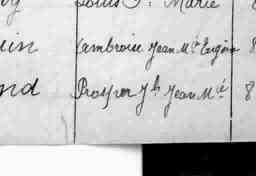 Louis J. Marie
uin Cambroise Jean M.ie Eugène 8
nd Prosper J.h Jean M.ie 8